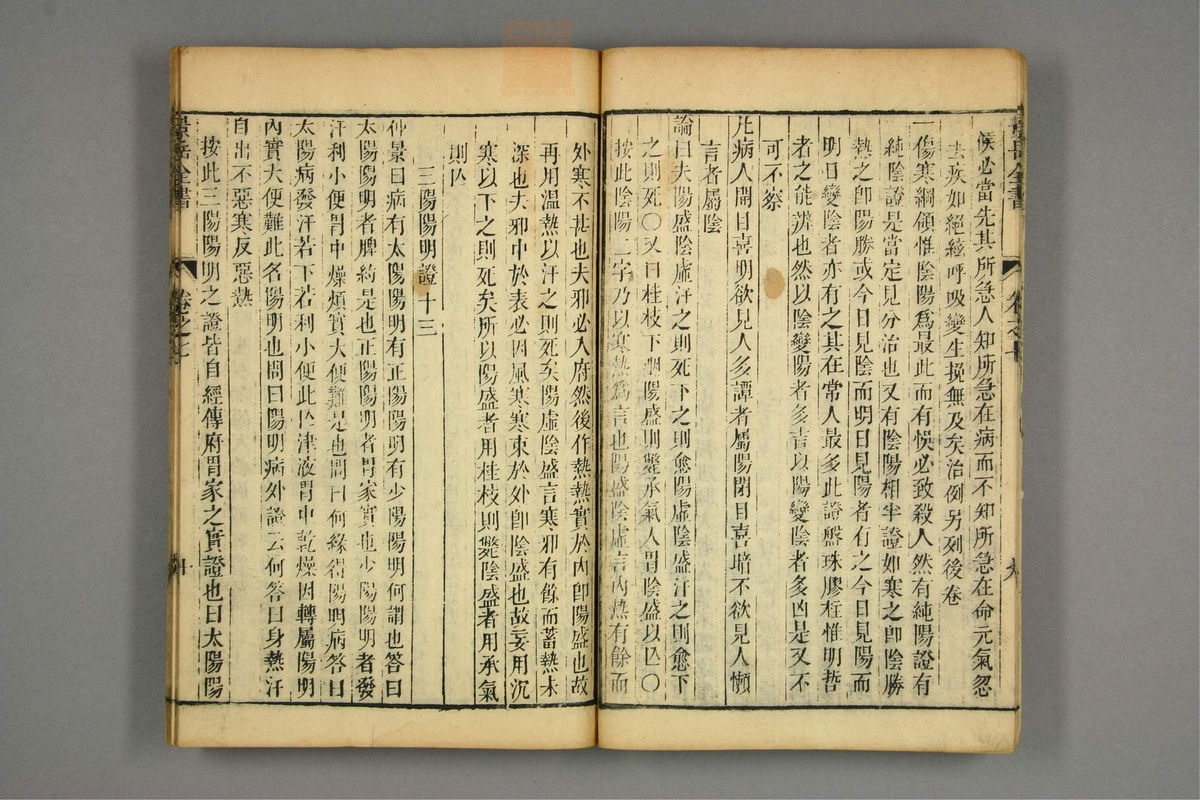 景岳全書
卷之七
九
候必當先其所急人知所急在病而不知所急在命元氣忽
去疾如絕絃呼吸變生挽無及矣治例另列後卷
一傷寒綱領惟陰陽爲最此而有悞必致殺人然有純陽證有
純陰證是當定見分治也又有陰陽相半證如寒之卽陰勝
熱之卽陽勝或今日見陰而明日見陽者有之今日見陽而
明日變陰者亦有之其在常人最多此證盤珠膠柱惟明哲
者之能辨也然以陰變陽者多吉以陽變陰者多凶是又不
可不察
凡病人開目喜明欲見人多譚者屬陽閉目喜暗不欲見人懶
言者屬陰
論曰夫陽盛陰虛汗之則死下之則愈陽虛陰盛汗之則愈下
之則死〇又曰桂枝下咽陽盛則斃承氣入胃陰盛以亾〇
按此陰陽二字乃以寒熱爲言也陽盛陰虛言內熱有餘而
外寒不甚也夫邪必入府然後作熱熱實於內卽陽盛也故
再用温熱以汗之則死矣陽虛陰盛言寒邪有餘而蓄熱未
深也夫邪中於表必因風寒寒束於外卽陰盛也故妄用沉
寒以下之則死矣所以陽盛者用桂枝則斃陰盛者用承氣
則亾
三陽陽明證十三
仲景曰病有太陽陽明有正陽陽明有少陽陽明何謂也答曰
太陽陽明者脾約是也正陽陽明者胃家實也少陽陽明者發
汗利小便胃中燥煩實大便難是也問曰何緣得陽明病答曰
太陽病發汗若下若利小便此亾津液胃中乾燥因轉屬陽明
內實大便難此名陽明也問曰陽明病外證云何答曰身熱汗
自出不惡寒反惡熱
按此三陽陽明之證皆自經傳府胃家之實證也曰太陽陽
景岳全書
卷之七
十